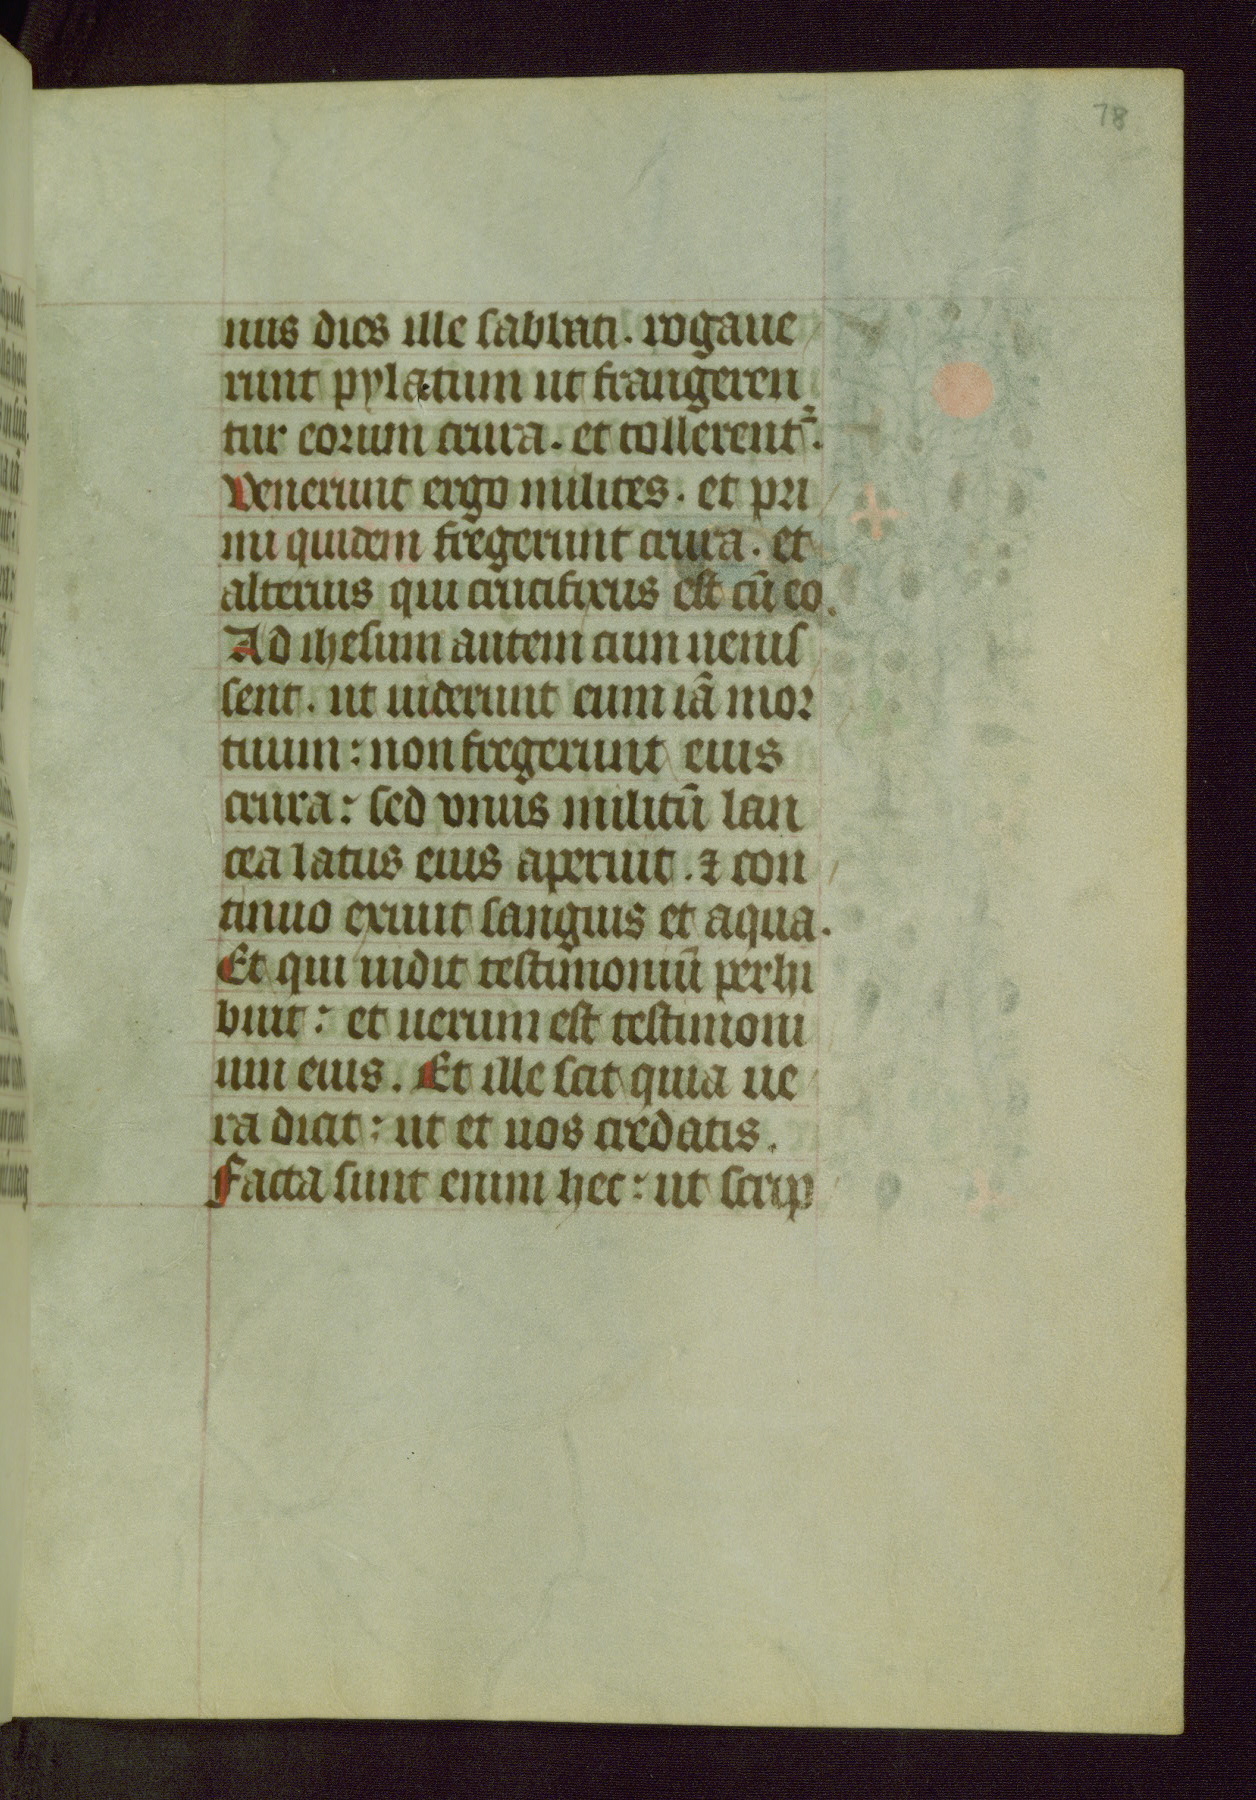 78
nus dies ille sabbati. rogaue
runt pylatum ut frangeren
tur eorum crura. et tollerent᷑.
Venerunt ergo milites. et pri
mi quidem fregerunt crura. et
alterius qui crucifixus est cū eo.
Ad ihesum autem cum uenis
sent. ut uiderunt eum iā mor
tuum: non fregerunt eius
crura: sed vnus militū lan
cea latus eius aperuit. ⁊ con
tinuo exiuit sanguis et aqua.
Et qui uidit testimoniū perhi
buit: et uerum est testimoni
um eius. Et ille scit quia ue
ra dicit: ut et uos credatis.
Facta sunt enim hec: ut scrip